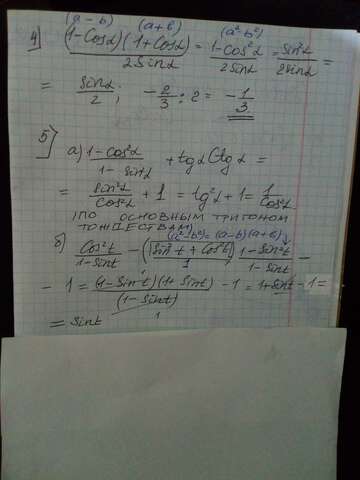 (a-b) (a+b) (a²-b²)
4) (1-Cosα)(1+Cosα)/2Sinα = 1-Cos²α/2Sinα = Sin²α/2Sinα =
= Sinα/2; -2/3 : 2 = -1/3
5) а) 1-Cos²α/1-Sin²α + tgα Ctgα =
= Sin²α/Cos²α + 1 = tg²α + 1 = 1/Cos²α
(ПО ОСНОВНЫМ ТРИГОНОМ
ТОЖДЕСТВАМ)
(a²-b²) = (a-b)(a+b)
б) Cos²t/1-Sint - (Sin²t + Cos²t)/1 1-Sin²t/1-Sint -
- 1 = (1-Sint)(1+Sint)/(1-Sint) - 1 = 1+Sint - 1 =
= Sint